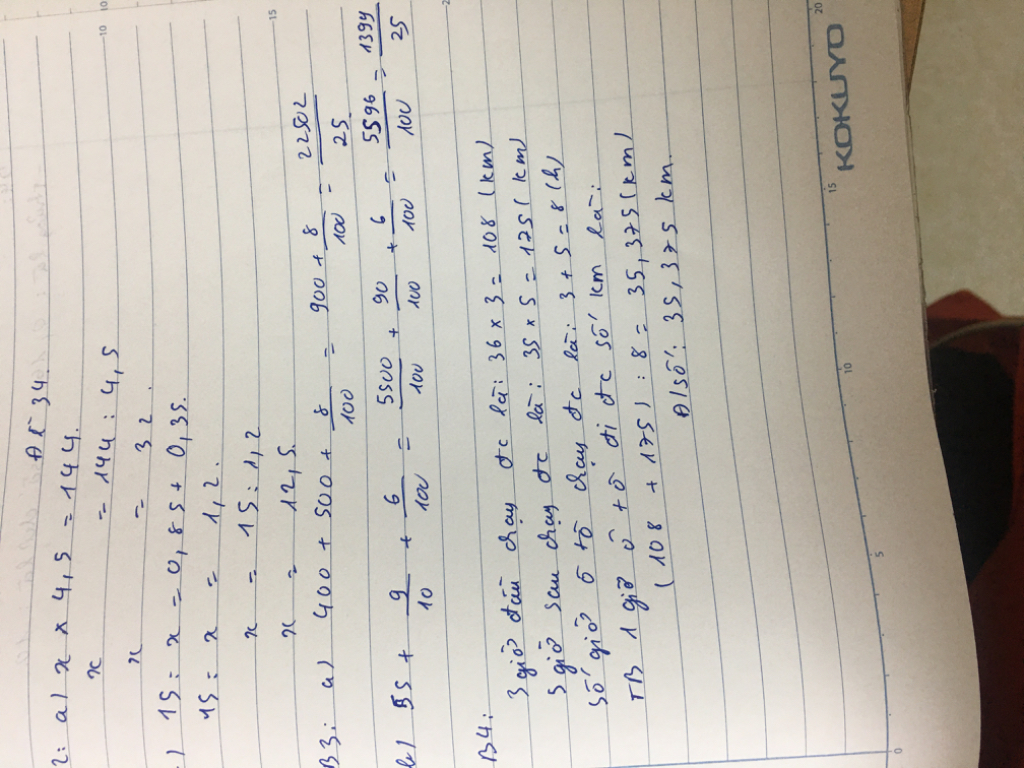 ĐỀ 34.
2: a) x × 4,5 = 144.
x = 144 : 4,5
x = 32.
) 15 : x = 0,85 + 0,35.
15 : x = 1,2.
x = 15 : 1,2
x = 12,5.
B3: a) 400 + 500 + 8/100 = 900 + 8/100 = 22502/25
b) 55 + 9/10 + 6/100 = 5500/100 + 90/100 + 6/100 = 5596/100 = 1399/25
B4:
3 giờ đầu chạy đc là: 36 x 3 = 108 (km)
5 giờ sau chạy đc là: 35 x 5 = 175 (km)
Số giờ ô tô chạy đc là: 3 + 5 = 8 (h)
TB 1 giờ ô tô đi đc số km là:
(108 + 175) : 8 = 35,375 (km)
Đ/số: 35,375 km
KOKUYO
0 5 10 15 20
10
15